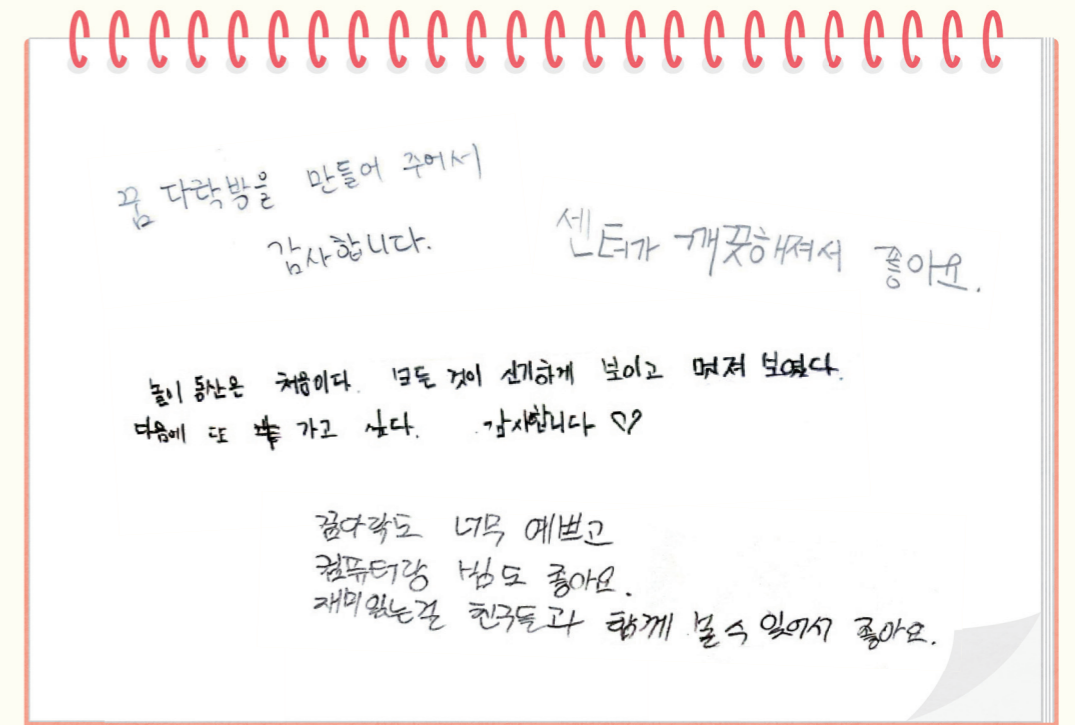 꿈 다락방을 만들어 주어서
감사합니다.
센터가 깨끗해져서 좋아요.
놀이 동산은 처음이다. 모든 것이 신기하게 보이고 멋져 보였다.
다음에 또 가고 싶다. 감사합니다 ♡
꿈다락도 너무 예쁘고
컴퓨터랑 도 좋아요.
재미있는걸 친구들과 함께 볼 수 있어서 좋아요.